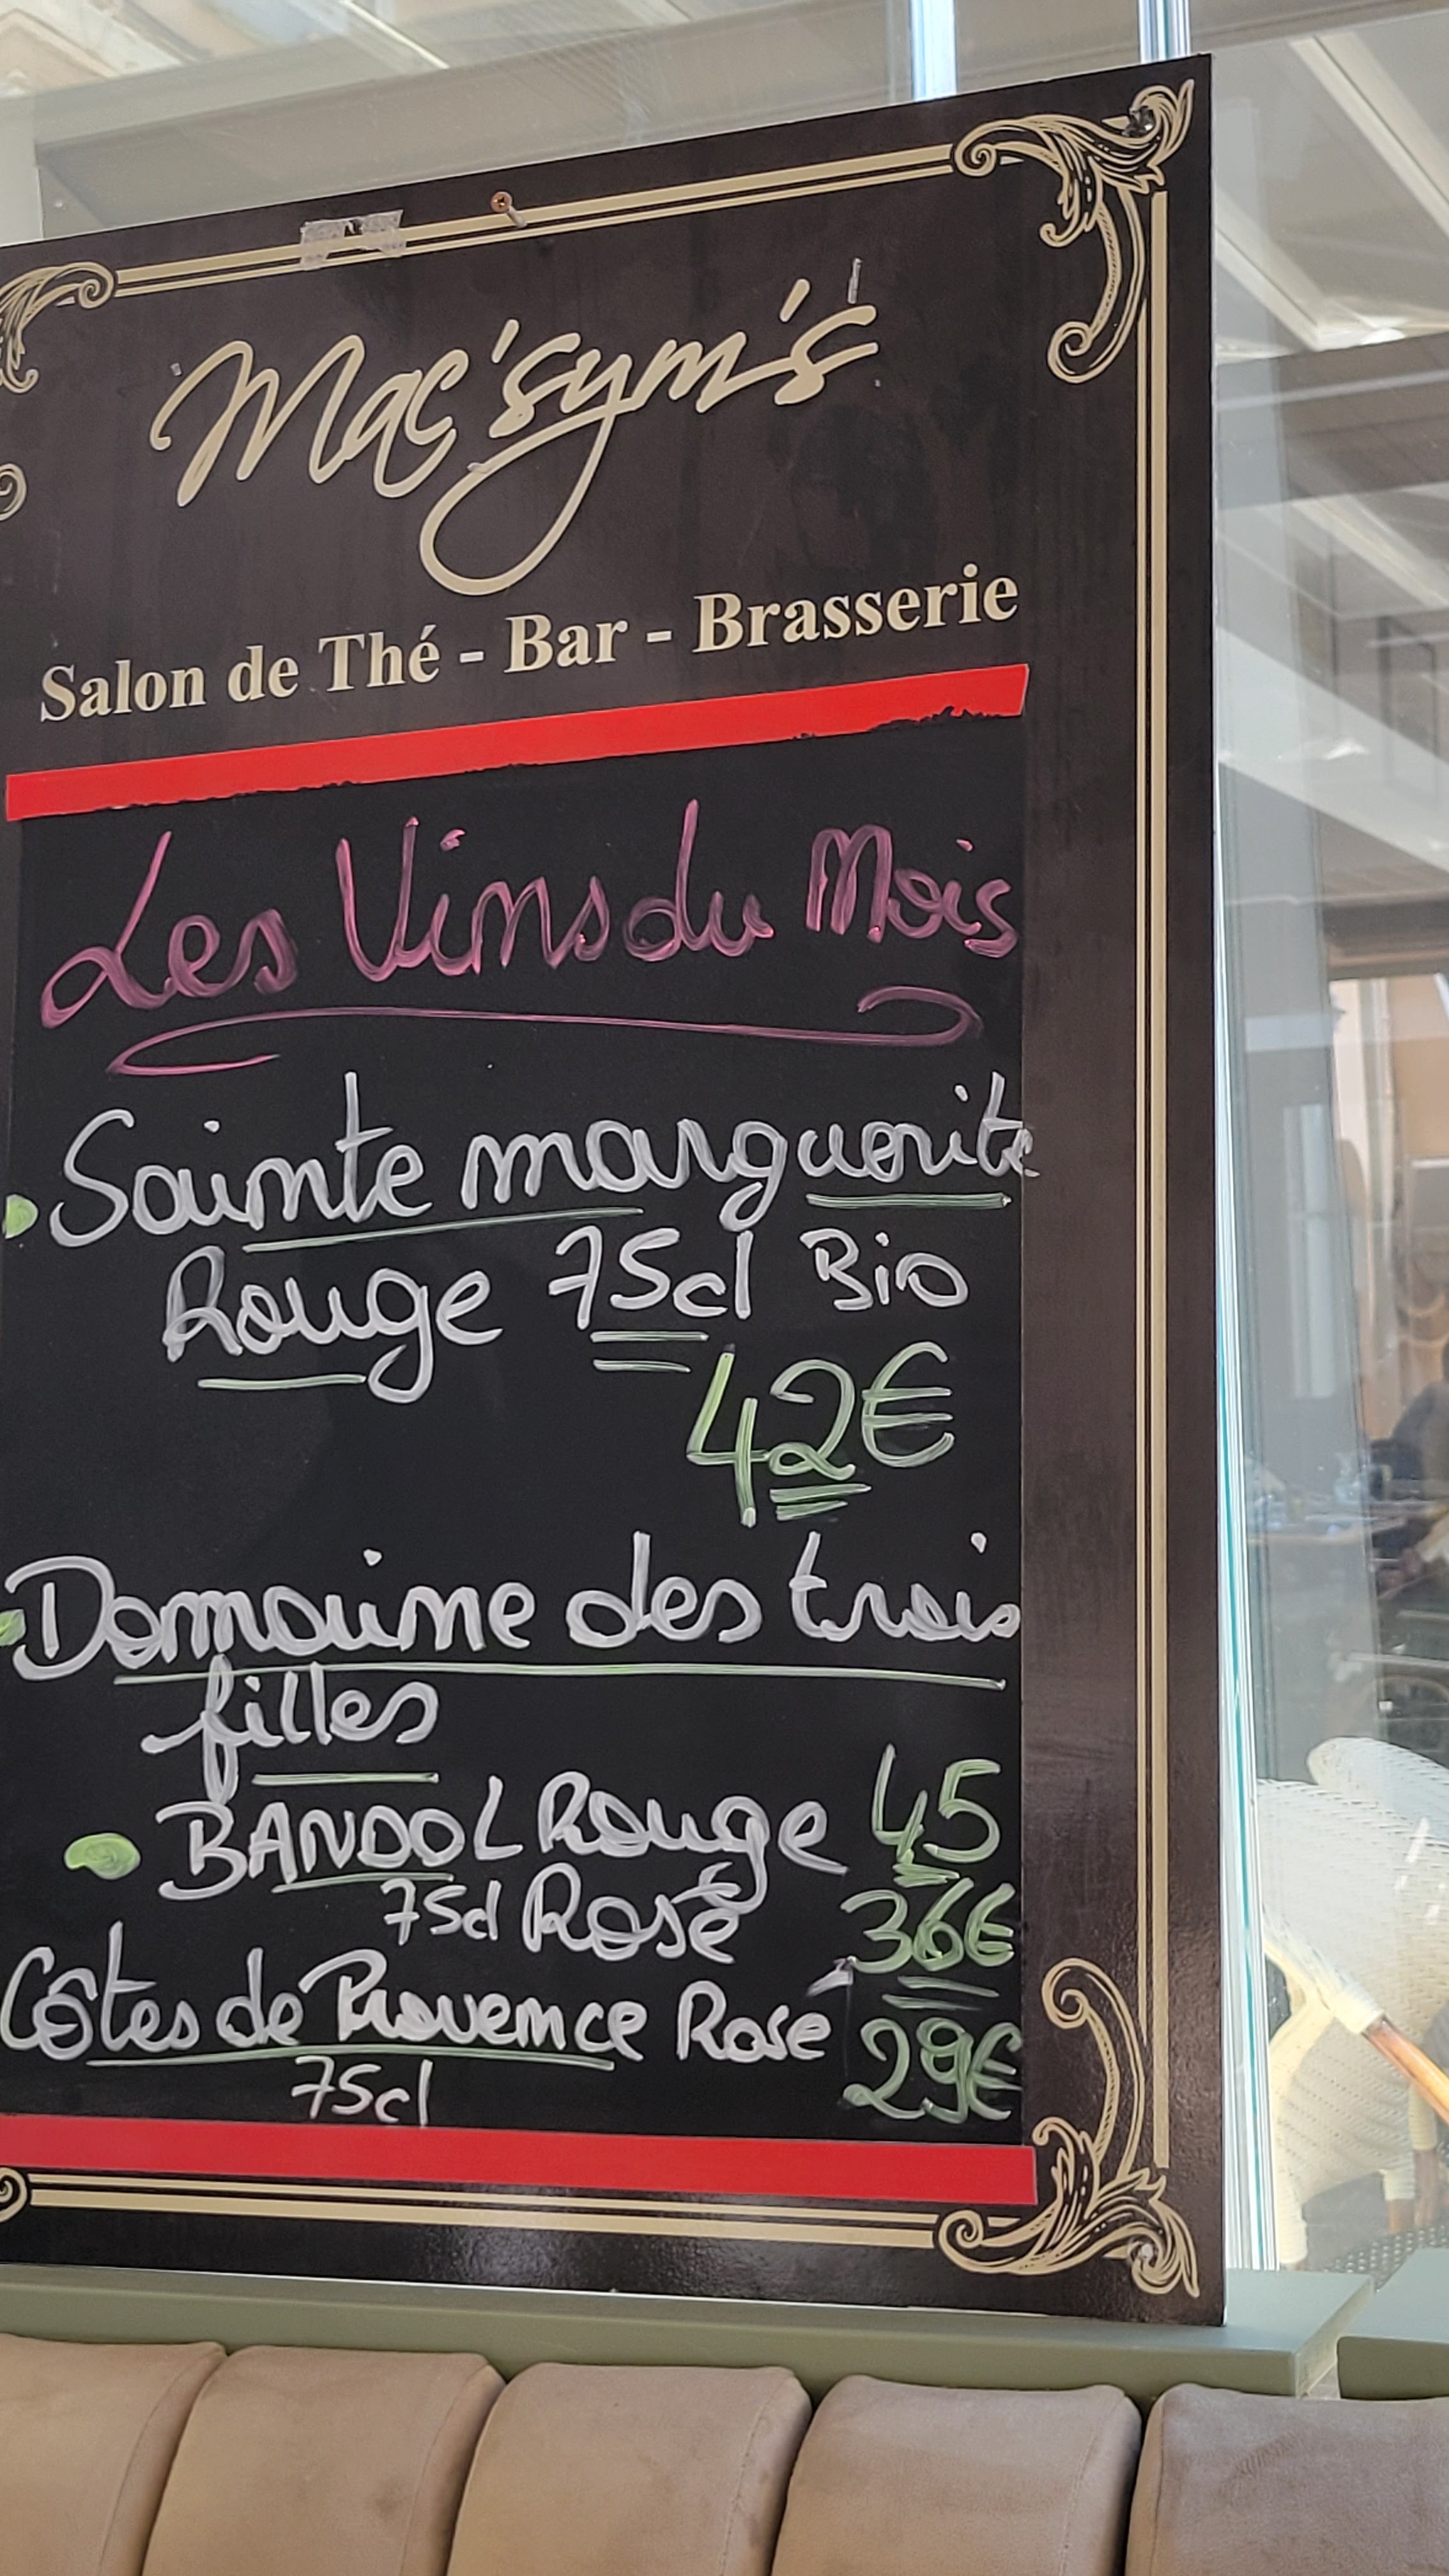 Mac'sym's
Salon de Thé - Bar - Brasserie
Les Vins du Mois
Sainte marguerite
Rouge 75cl Bio
42€
Domaine des trois
filles
BANDOL Rouge 45
75cl Rosé 36€
Côtes de Provence Rosé 29€
75cl